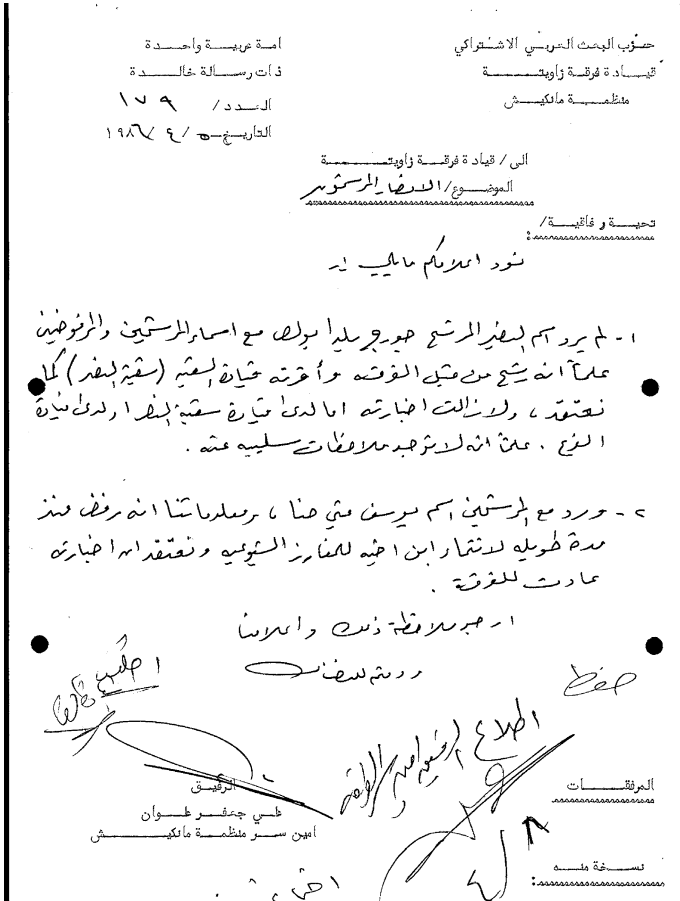 حزب البعث العربي الاشتراكي
قيادة فرقة زاويتة
منظمة مانكيش
امة عربية واحدة
ذات رسالة خالدة
العدد / ١٧٩
التاريخ ٥ / ٤ / ١٩٨٦
الى / قيادة فرقة زاويتة
الموضوع / الانصار المرشحون
تحية رفاقية /
نود اعلامكم مايلي :-
١- لم يرد اسم النصير المرشح جورج يلدا بولص مع اسماء المرشحين والمرفوضين
علماً انه رشح من قبل الفرقة وأقرته قيادة الشعبة كما
نعتقد ، ولازالت اخبارته اما لدى قيادة شعبة او لدى قيادة
الفرع . علماً انه لا توجد ملاحظات سلبية عنه .
٢- ورد مع المرشحين اسم يوسف متي حنا ، ومعلوماتنا انه رفض منذ
مدة طويلة لانتماء ابن اخيه للمفارز الشيوعية ونعتقد ان اخبارته
عادت للفرقة .
ارجو ملاحظة ذلك واعلامنا
ودمتم للنضال
حفظ
اطلاع الرفيق امين سر الفرقة
٤/٨
المرفقات
الرفيق
علي جعفر علوان
امين سر منظمة مانكيش
نسخة منه :